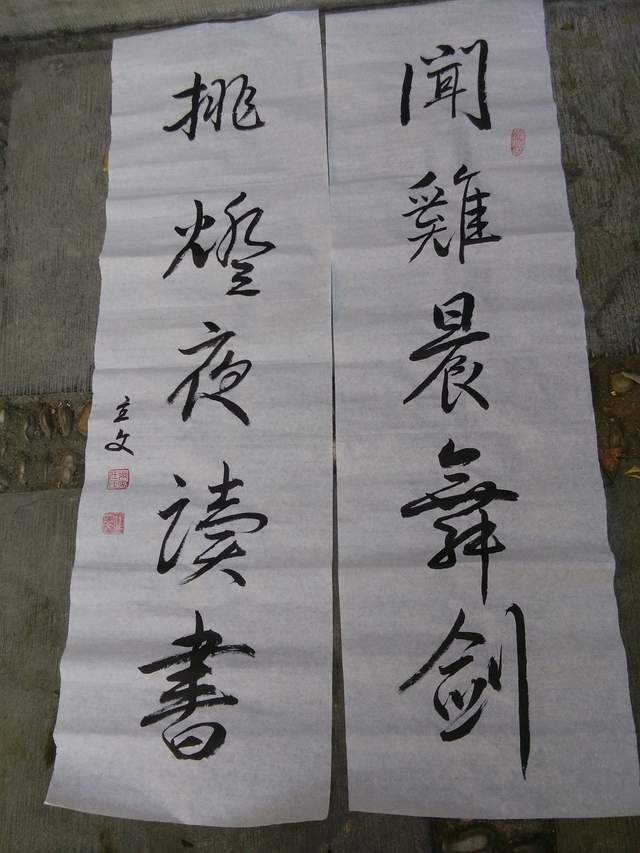 聞雞晨舞劍
挑燈夜讀書
立文